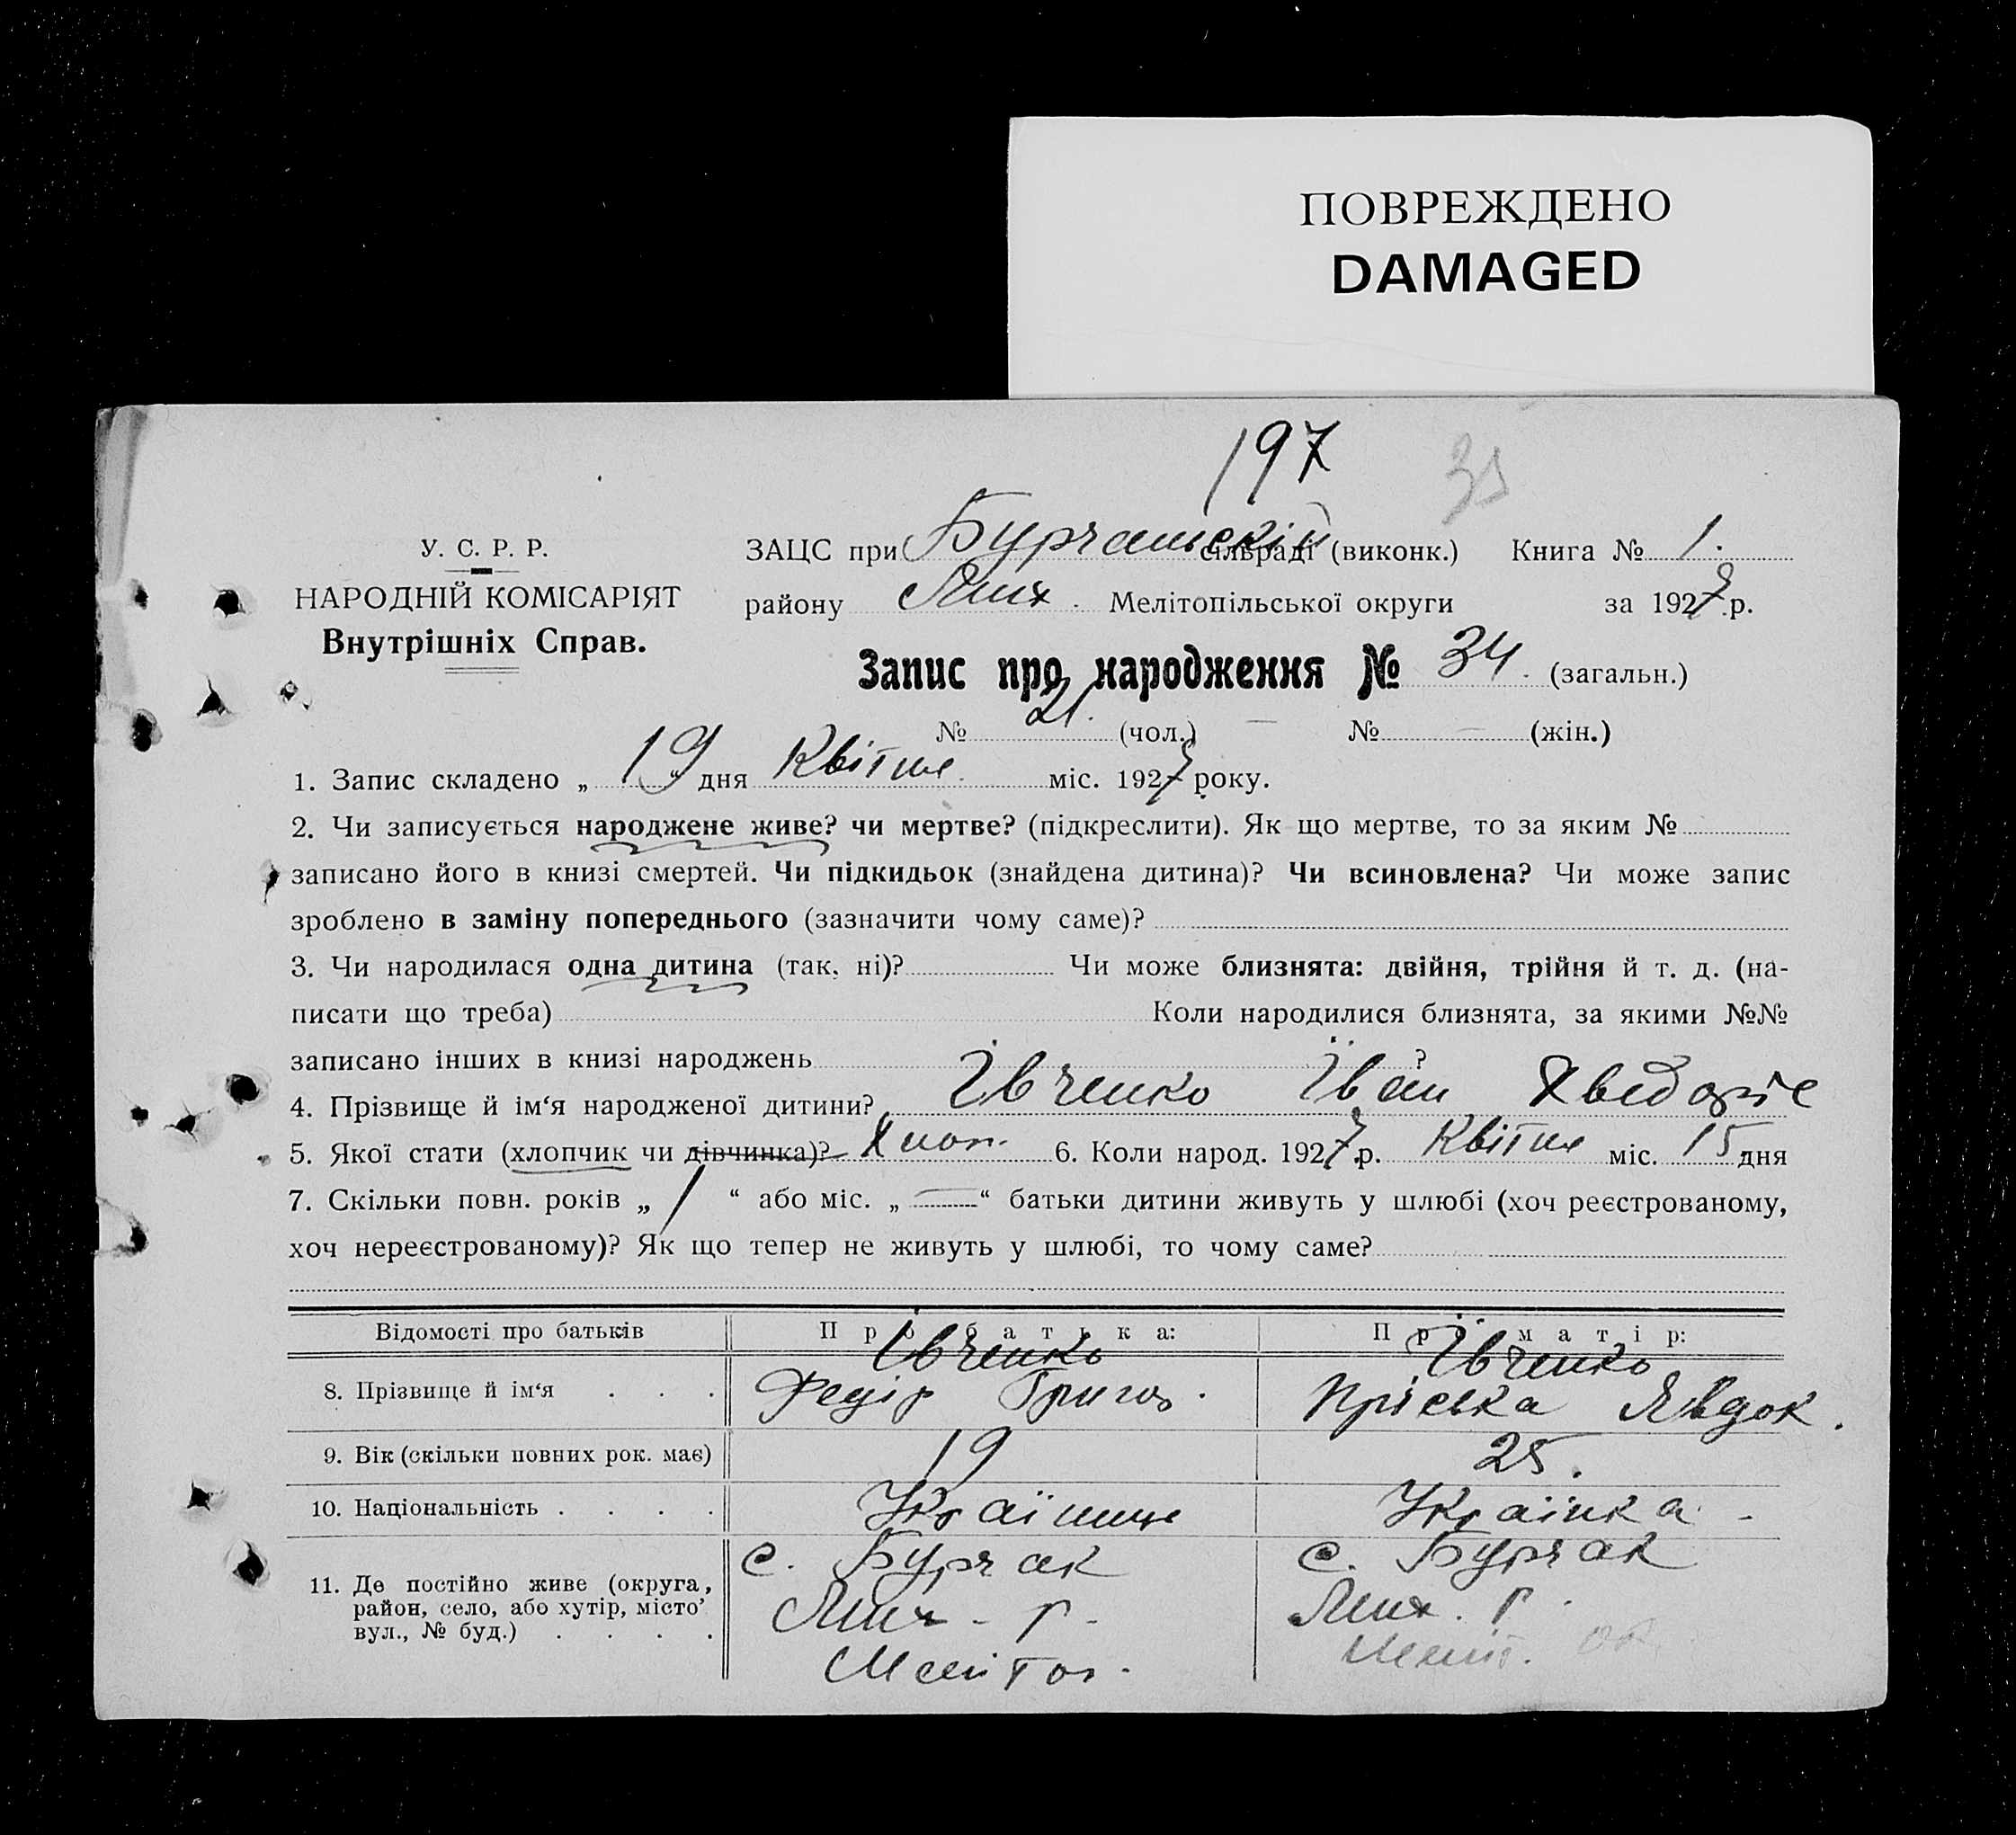 ПОВРЕЖДЕНО
DAMAGED
197
У. С. Р. Р.
НАРОДНІЙ КОМІСАРІЯТ
Внутрішніх Справ.
ЗАЦС при Бурчатській сільраді (виконк.) Книга № 1.
району Мих. Мелітопільської округи за 1928 р.
Запис про народження № 34. (загальн.)
№ 21. (чол.) — № — (жін.)
1. Запис складено „ 19 “ дня Квітня міс. 1928 року.
2. Чи записується народжене живе? чи мертве? (підкреслити). Як що мертве, то за яким №
записано його в книзі смертей. Чи підкидьок (знайдена дитина)? Чи всиновлена? Чи може запис
зроблено в заміну попереднього (зазначити чому саме)?
3. Чи народилася одна дитина (так, ні)? Чи може близнята: двійня, трійня й т. д. (на-
писати що треба) Коли народилися близнята, за якими №№
записано інших в книзі народжень ?
4. Прізвище й ім‘я народженої дитини? Івченко Іван
5. Якої стати (хлопчик чи дівчинка)? Хлоп. 6. Коли народ. 1928 р. Квітня міс. 15 дня
7. Скільки повн. років „ 1 “ або міс. „ — “ батьки дитини живуть у шлюбі (хоч реєстрованому,
хоч нереєстрованому)? Як що тепер не живуть у шлюбі, то чому саме?
Відомості про батьків Про батька: Про матір:
8. Прізвище й ім‘я . . . Івченко Федір Григор. Івченко Пріська Явдок.
9. Вік (скільки повних рок. має) 19 25.
10. Національність . . . . Українець Українка
11. Де постійно живе (округа, район, село, або хутір, місто’ вул., № буд.) . . . . с. Бурчак Мих. р. Меліtоп. с. Бурчак Мих. р. Меліт. ок.